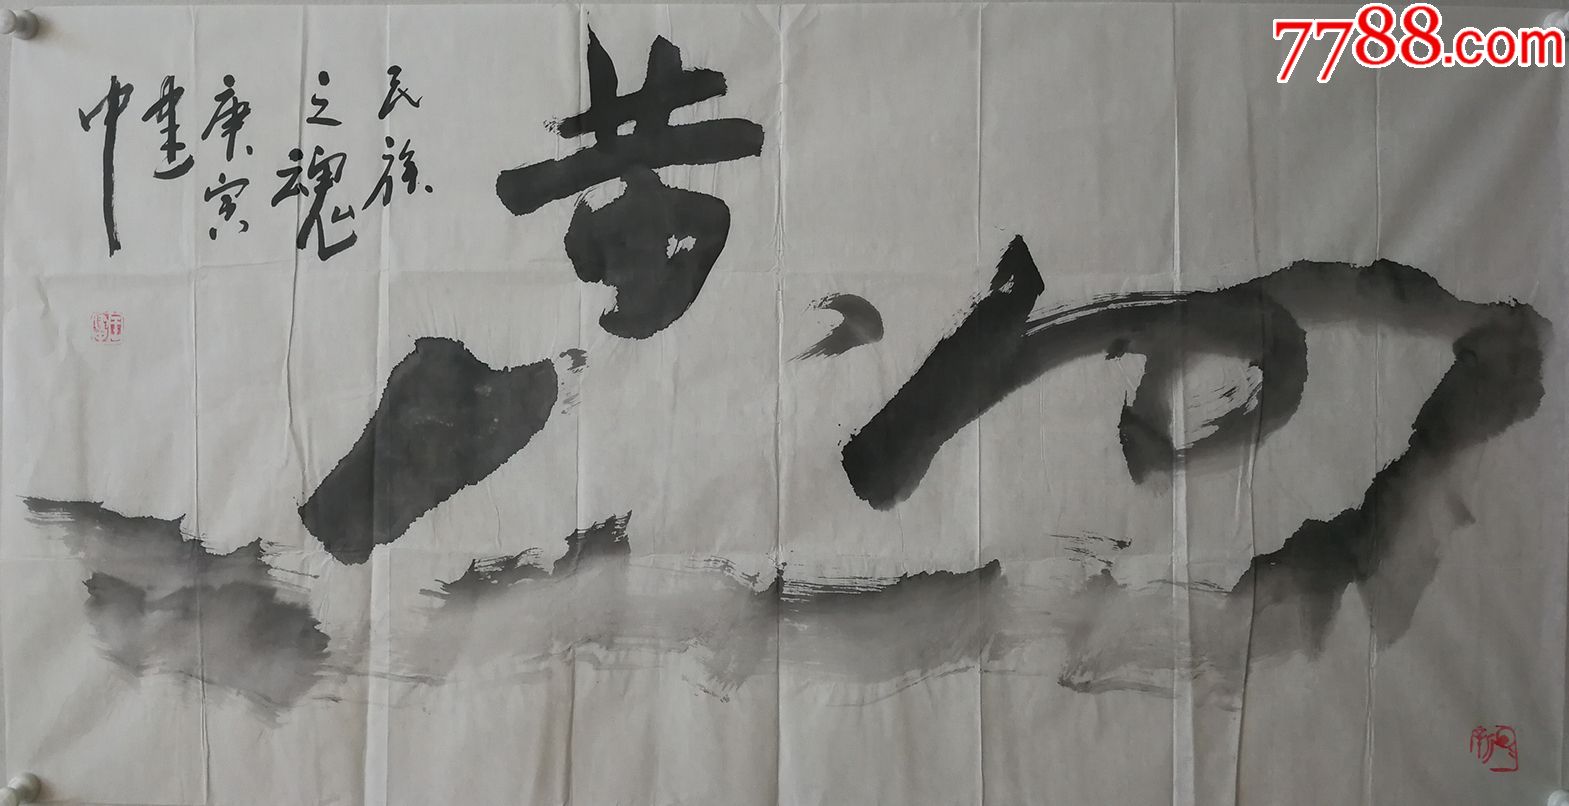 7788.com
黄河
民族
之魂
庚寅
建
中